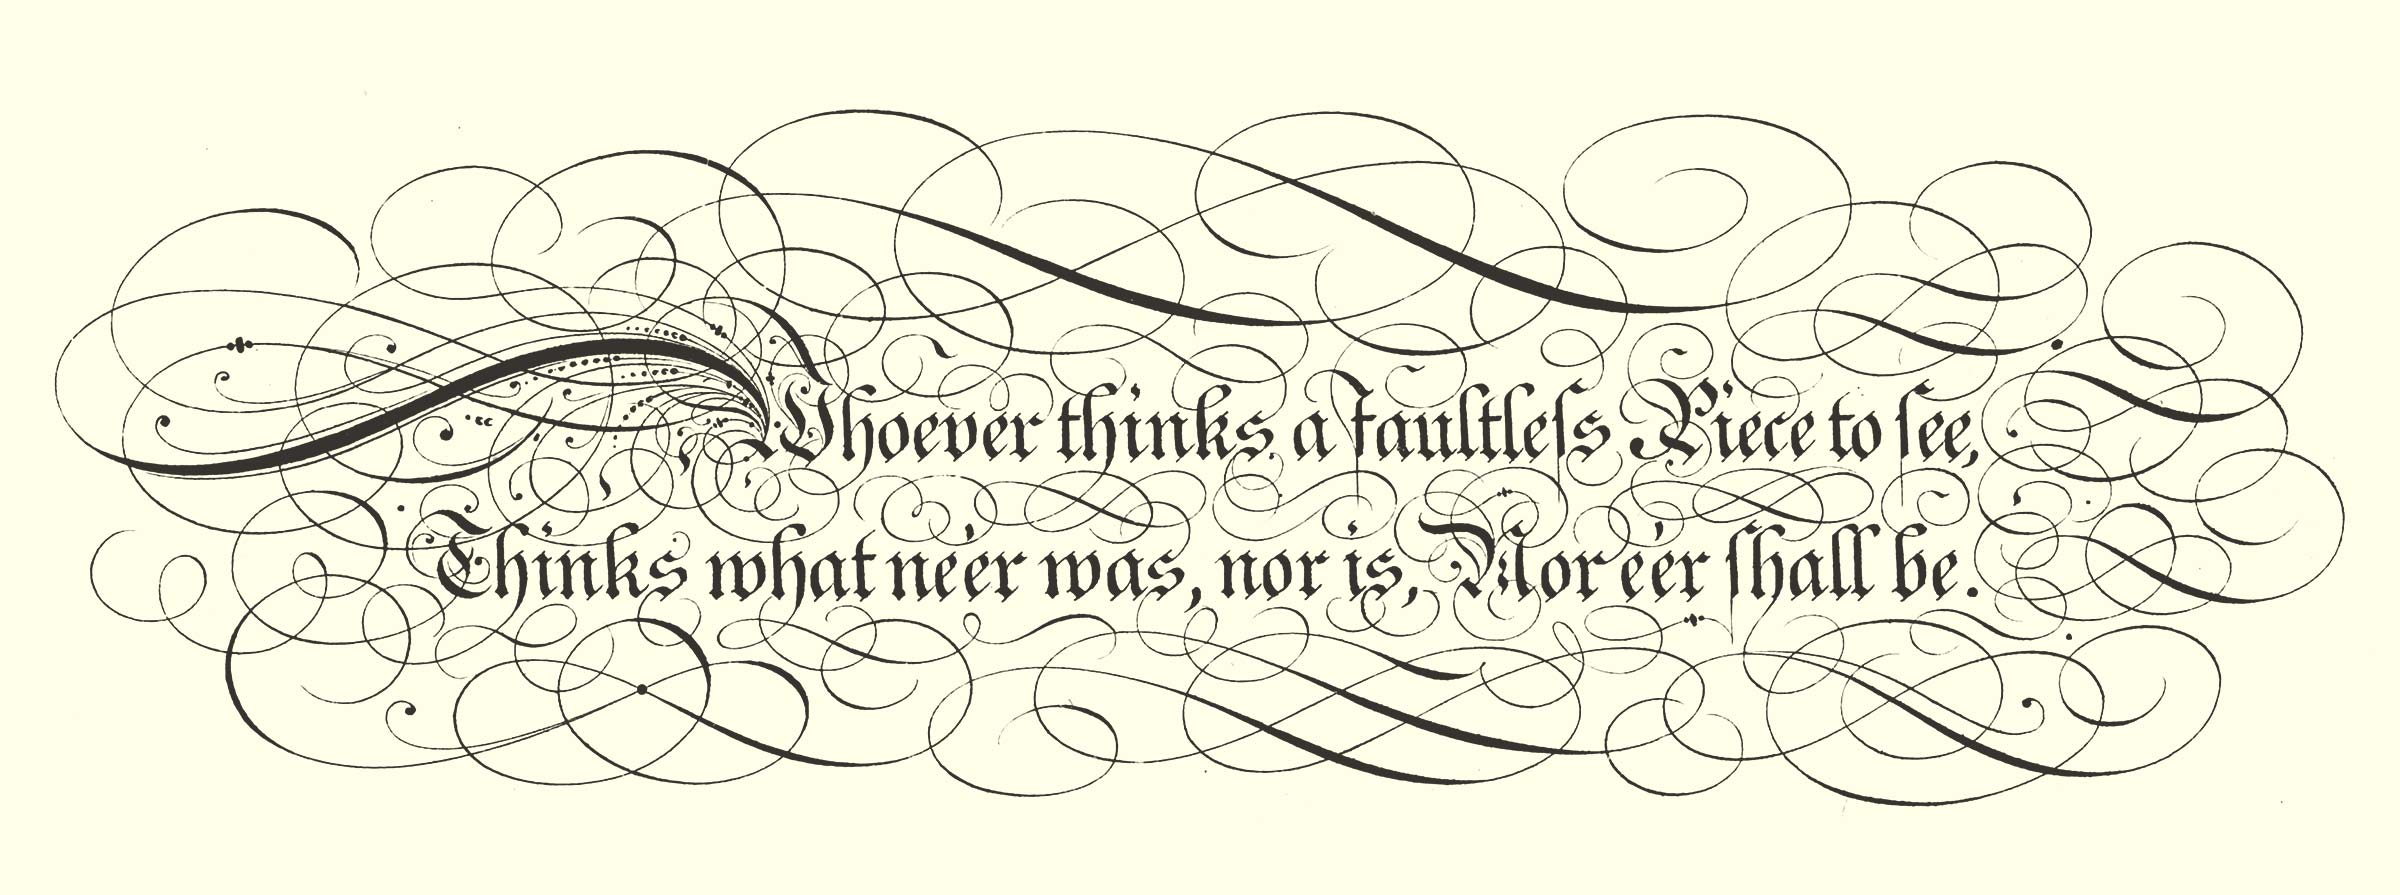 Whoever thinks a faultleſs Piece to ſee,
Thinks what ne'er was, nor is, Nor e'er ſhall be.